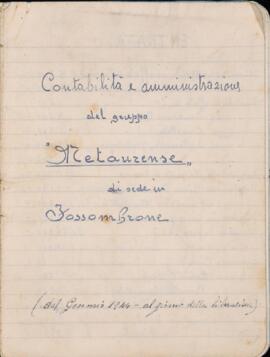 Contabilità e amministrazione
del gruppo
"Metaurense„
di sede in
Fossombrone
(dal Gennaio 1944 - al giorno della liberazione)